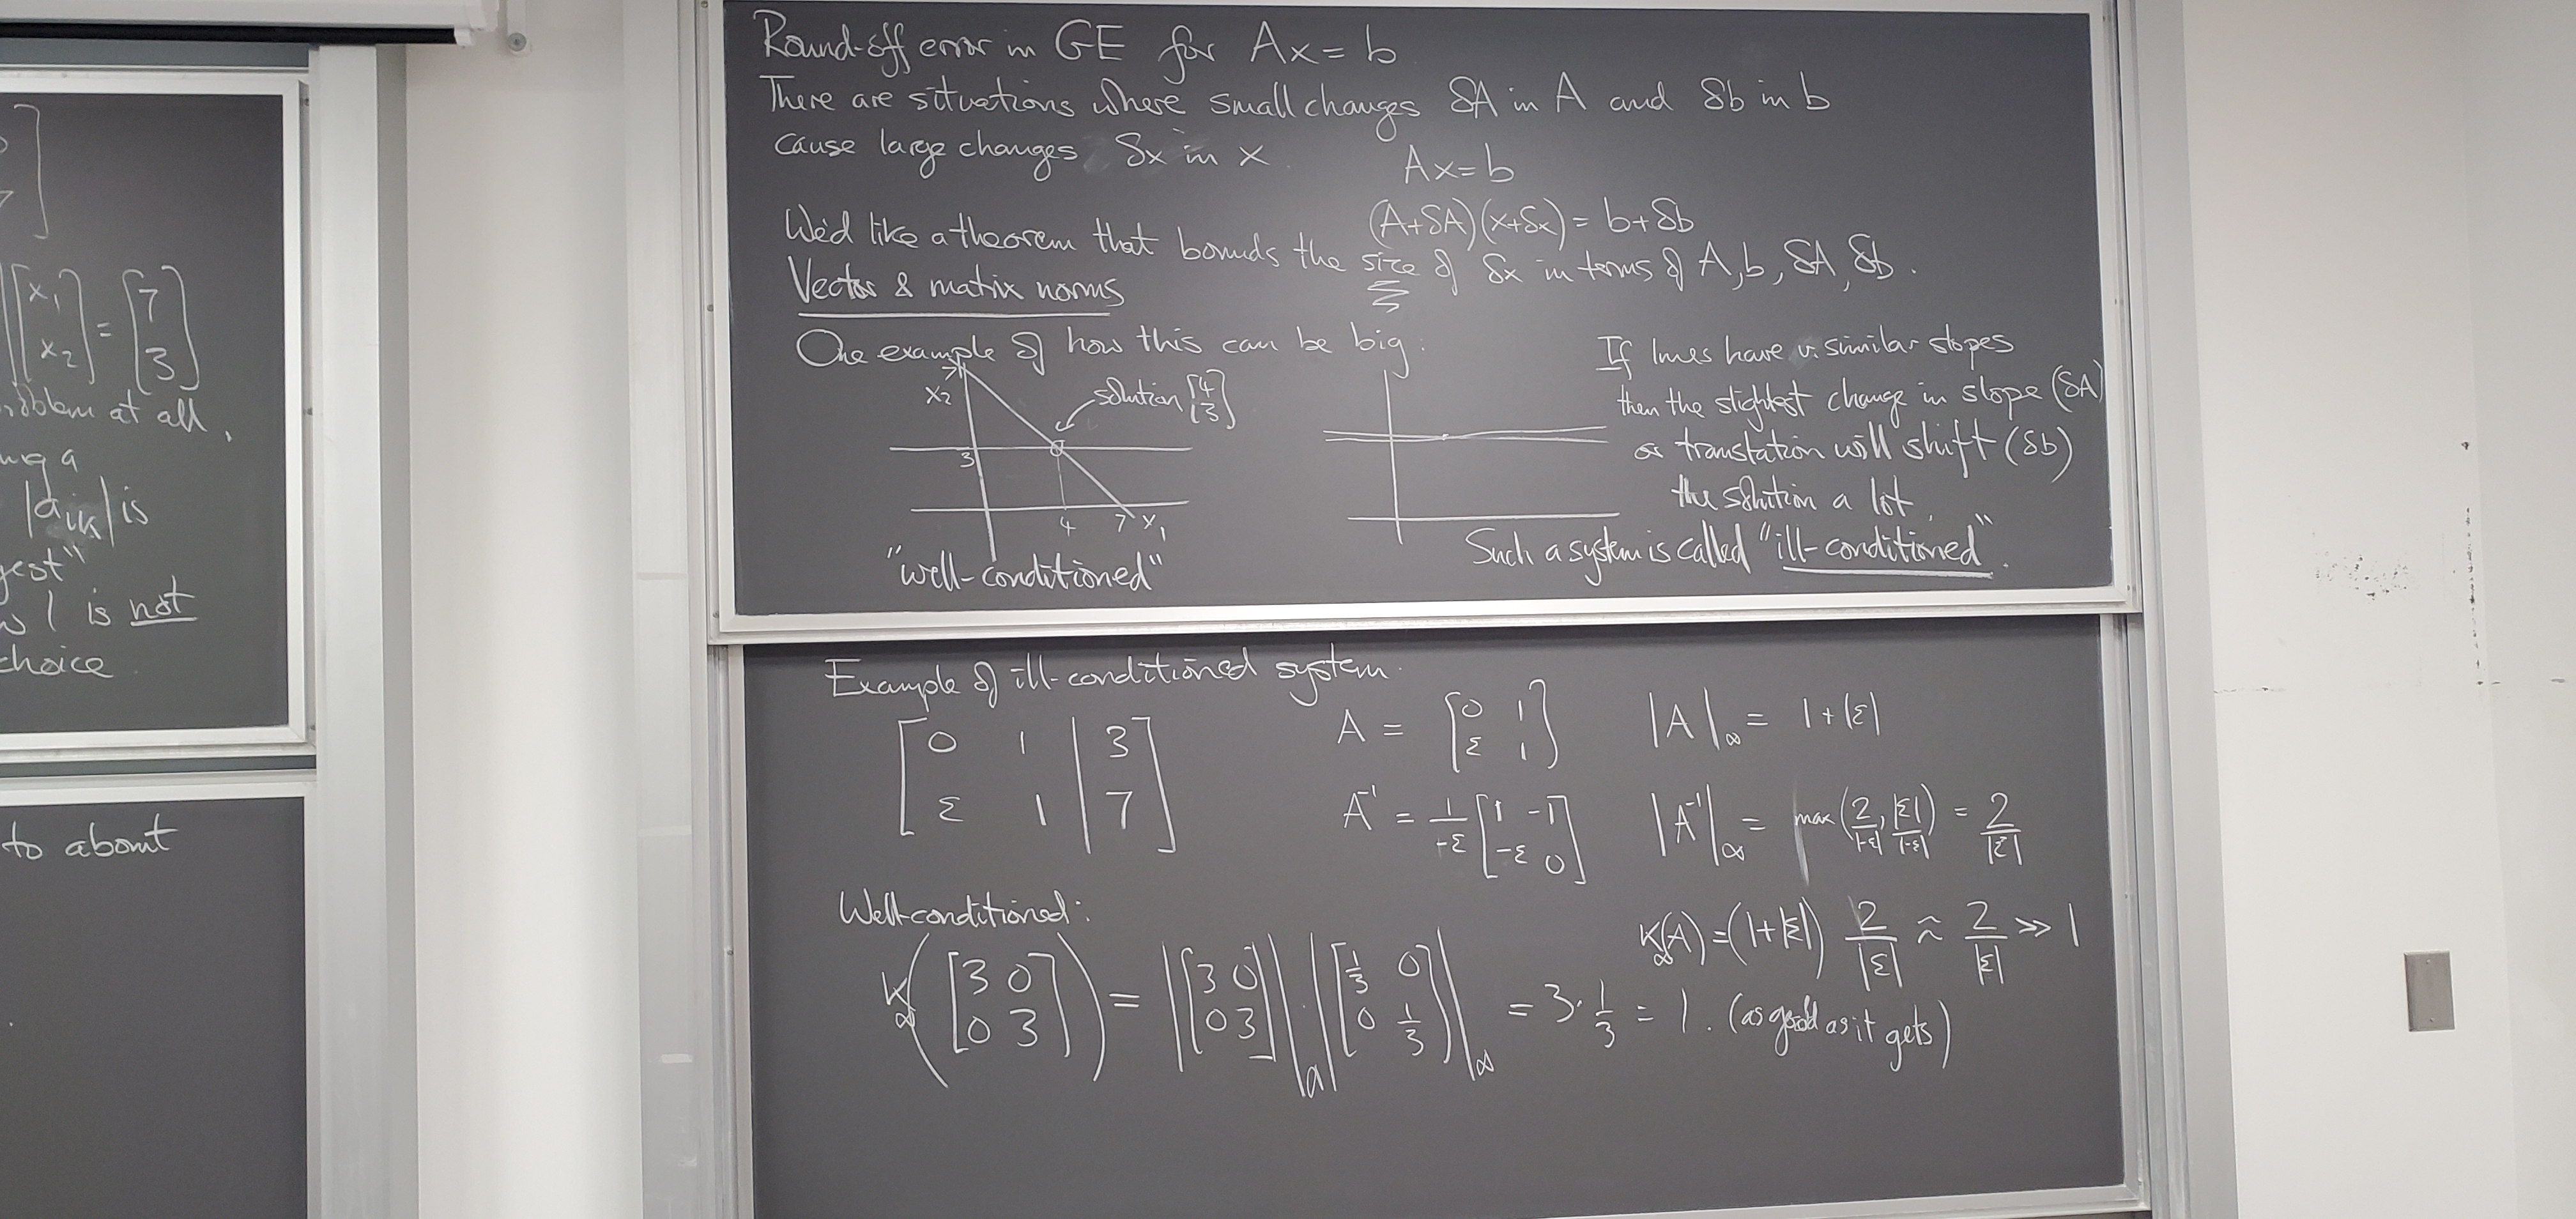 ]
[x₁ x₂] = [7 3]
problem at all,
|a_ik| is
is not
choice
to about
Round-off error in GE for Ax = b
There are situations where small changes δA in A and δb in b
cause large changes δx in x.
Ax = b
(A+δA)(x+δx) = b+δb
We'd like a theorem that bounds the size of δx in terms of A, b, δA, δb.
Vector & matrix norms
One example of how this can be big:
7
x₂
solution [4 3]
3
4 7 x₁
"well-conditioned"
If lines have v. similar slopes
then the slightest change in slope (δA)
or translation will shift (δb)
the solution a lot.
Such a system is called "ill-conditioned".
Example of ill-conditioned system.
[0 1 | 3
ε 1 | 7]
A = [0 1
ε 1]
|A|∞ = 1+|ε|
A⁻¹ = 1/-ε [1 -1
-ε 0]
|A⁻¹|∞ = max(2/|-ε|, |ε|/|-ε|) = 2/|ε|
K∞(A) = (1+|ε|) 2/|ε| ≈ 2/|ε| >> 1
Well-conditioned:
K∞([3 0
0 3]) = |[3 0
0 3]|∞ |[1/3 0
0 1/3]|∞ = 3·1/3 = 1. (as good as it gets)